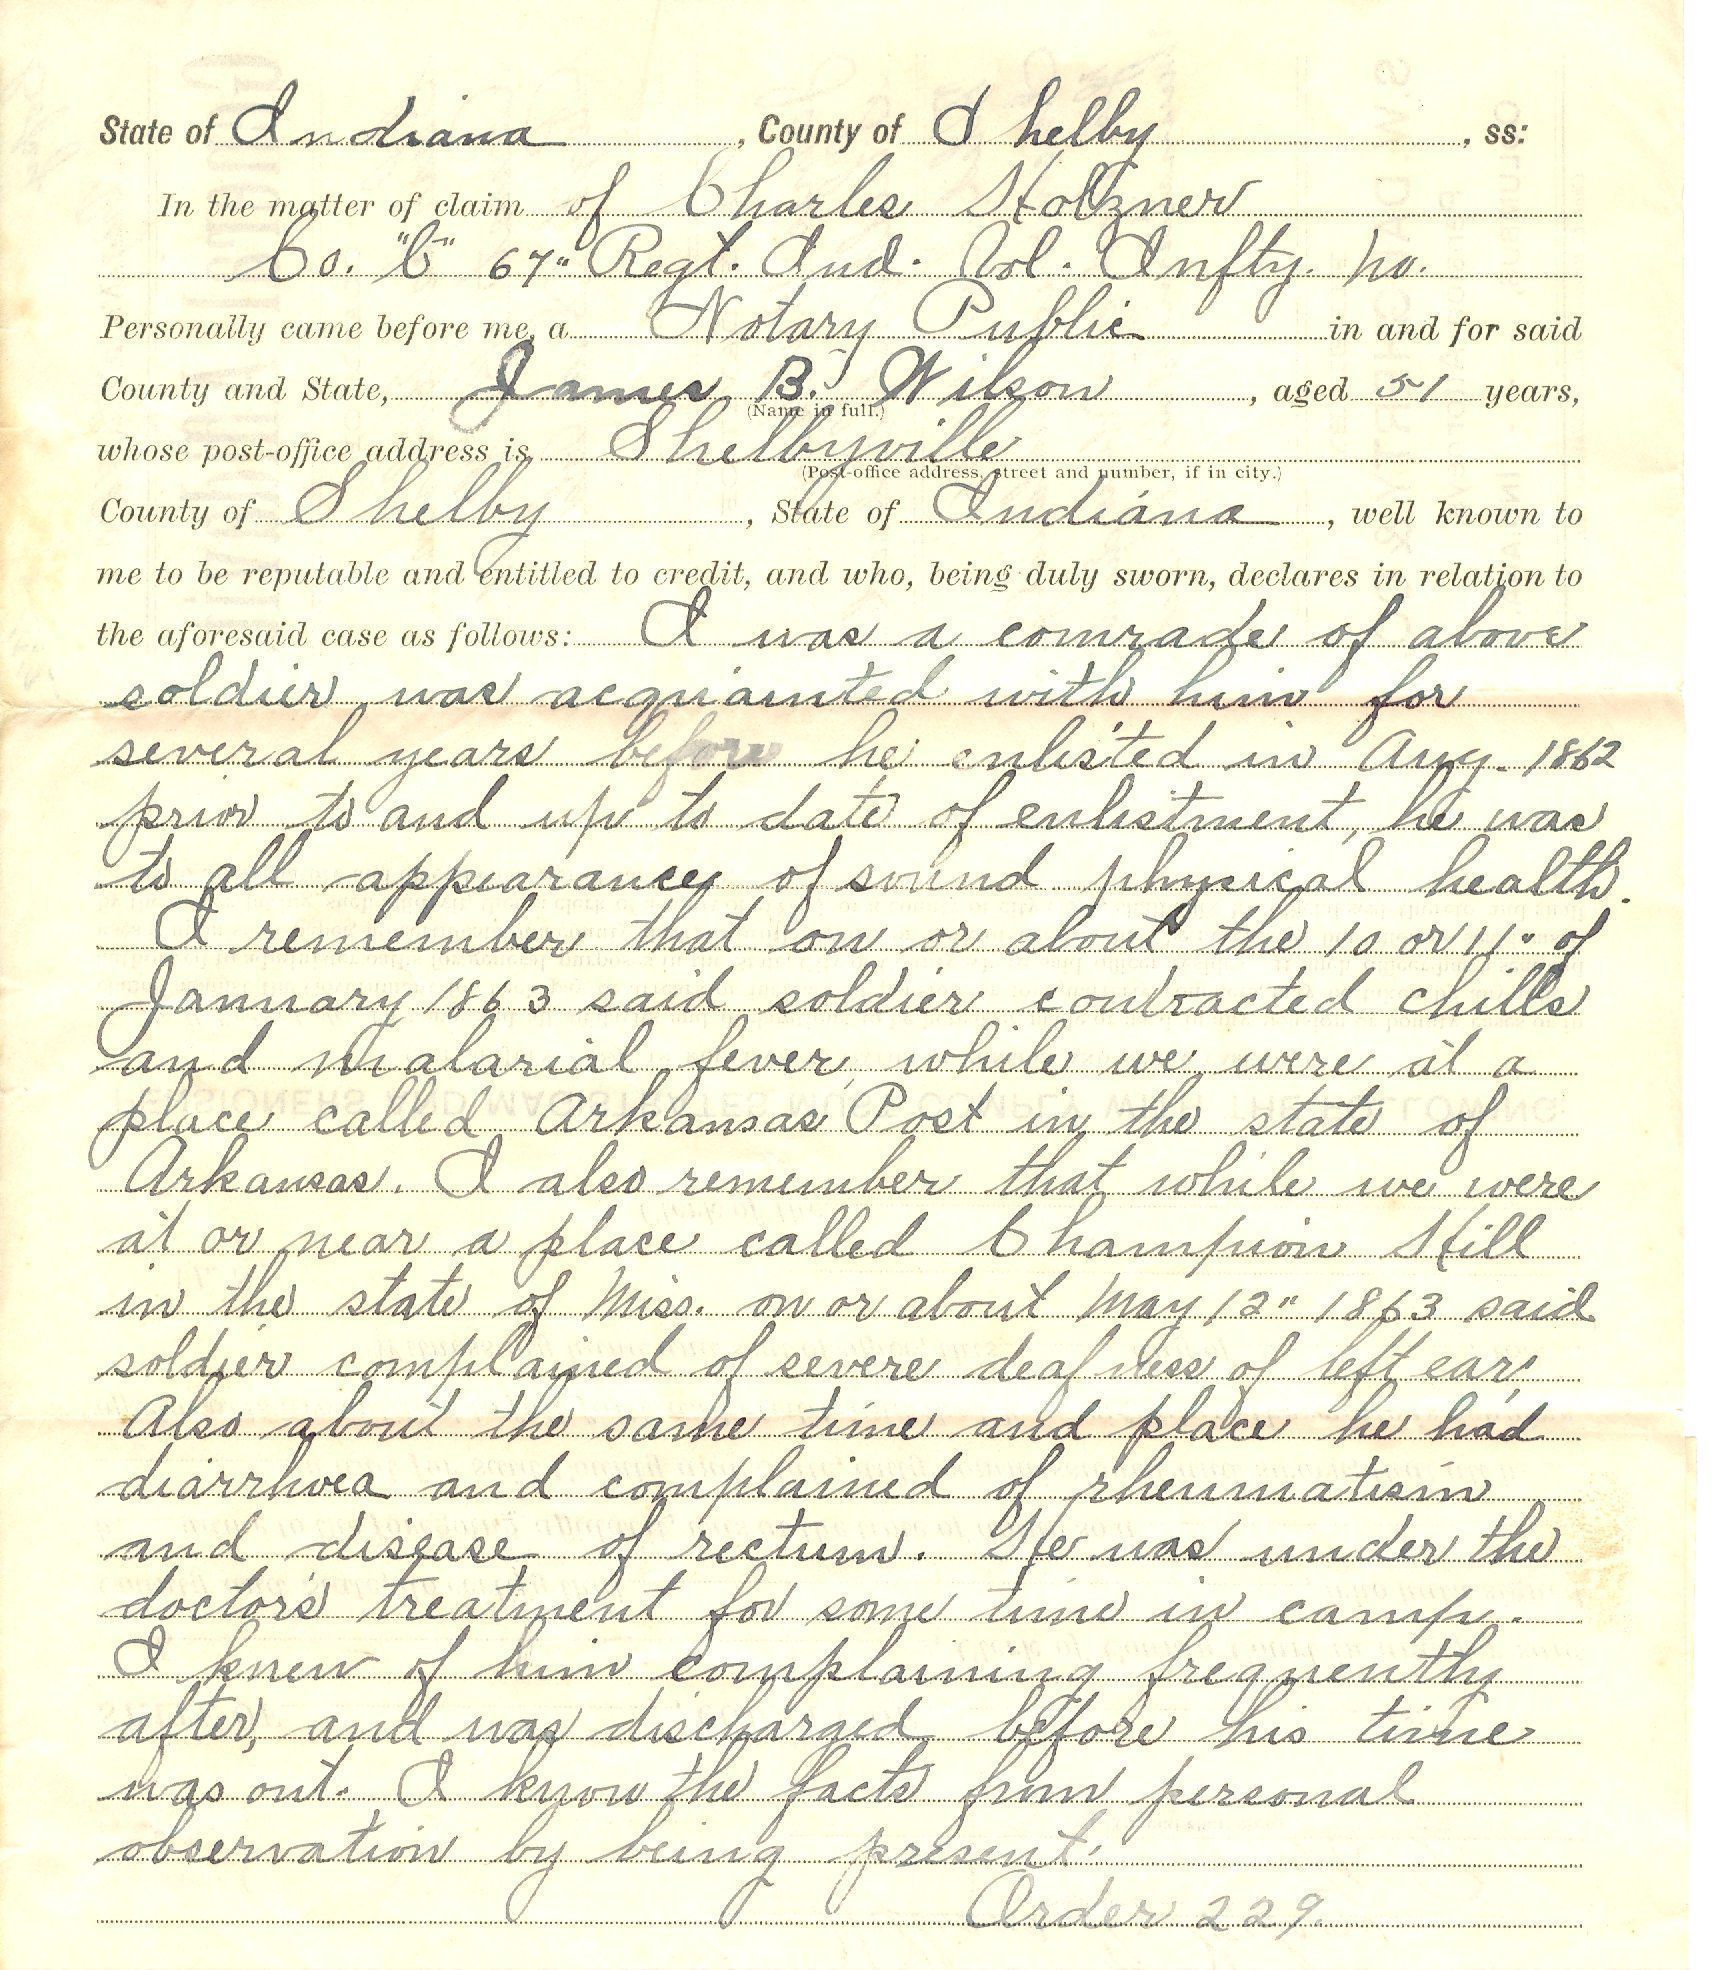 State of Indiana, County of Shelby, ss:
In the matter of claim of Charles Holzner
Co. "C" 67" Regt. Ind. Vol. Infty. No.
Personally came before me, a Notary Public in and for said
County and State, James B. Wilson, aged 51 years,
(Name in full.)
whose post-office address is Shelbyville
(Post-office address, street and number, if in city.)
County of Shelby, State of Indiana, well known to
me to be reputable and entitled to credit, and who, being duly sworn, declares in relation to
the aforesaid case as follows: I was a comrade of above
soldier was acquiainted with him for
several years before he enlisted in Aug. 1862
prior to and up to date of enlistment, he was
to all appearances of sound physical health.
I remember that on or about the 10 or 11" of
January 1863 said soldier contracted chills
and malarial fever, while we were at a
place called Arkansas Post in the state of
Arkansas. I also remember that while we were
at or near a place called Champion Hill
in the state of Miss. on or about May 12" 1863 said
soldier complained of severe deafness of left ear,
Also about the same time and place he had
diarrhoea and complained of rheumatism
and disease of rectum. He was under the
doctor's treatment for some time in camp.
I knew of him complaining frequently
after, and was discharged before his time
was out. I know the facts from personal
observation by being present.
Order 229.